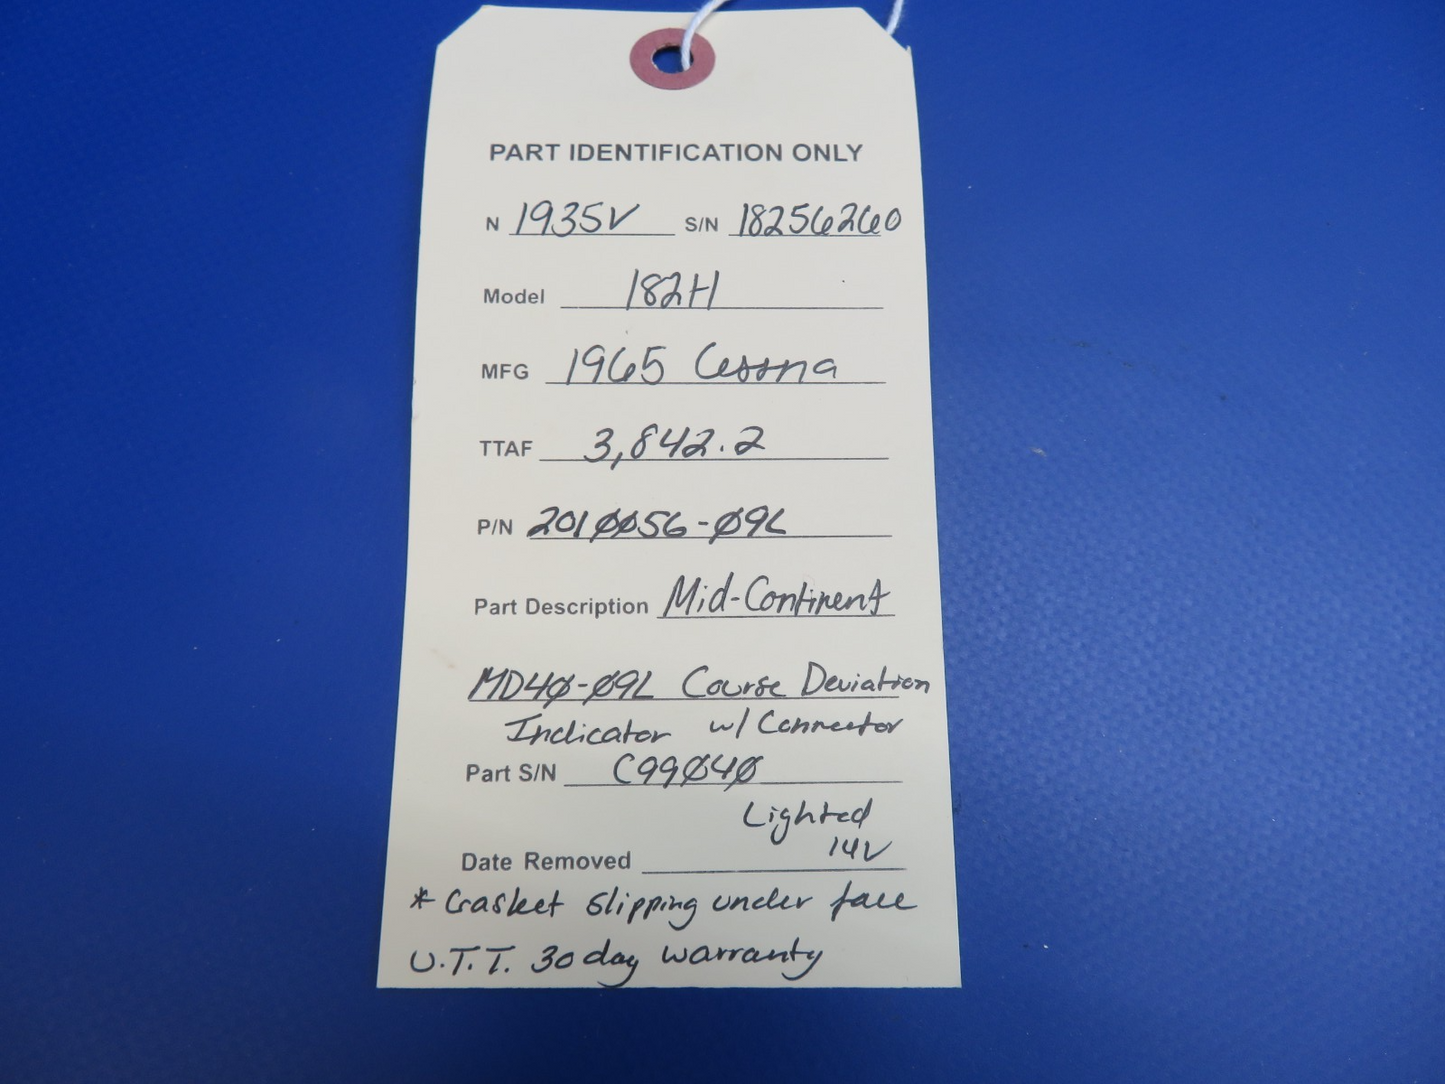 PART IDENTIFICATION ONLY
N 1935V S/N 18256260
Model 182H
MFG 1965 Cessna
TTAF 3,842.2
P/N 2010056-09L
Part Description Mid-Continent
MD40-09L Course Deviation
Indicator w/ Connector
Part S/N C99040
Lighted
14V
Date Removed
* Gasket slipping under face
U.T.T. 30 day warranty